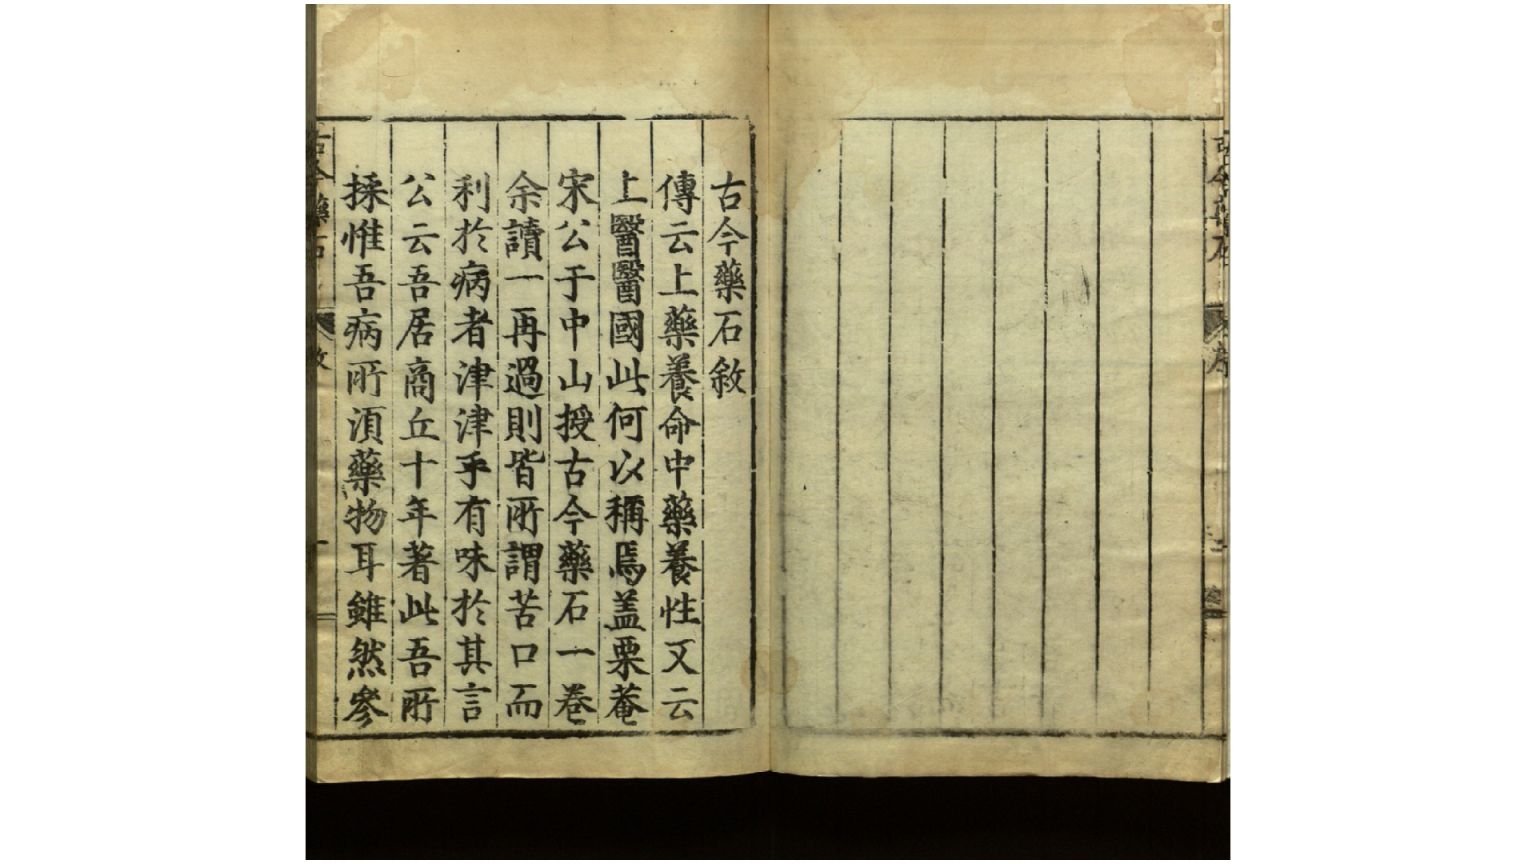 古今藥石敘
傳云上藥養命中藥養性又云
上醫醫國此何以稱焉盖栗菴
宋公于中山授古今藥石一卷
余讀一再過則皆所謂苦口而
利於病者津津乎有味於其言
公云吾居商丘十年著此吾所
採惟吾病所湏藥物耳雖然參
古今藥石
敘